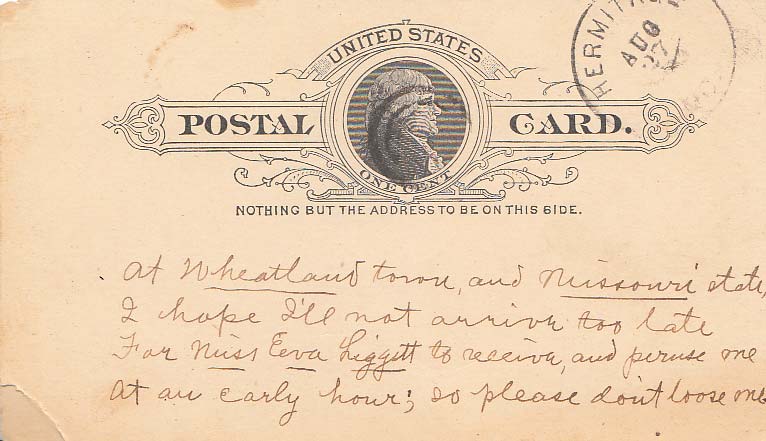 UNITED STATES
POSTAL CARD.
ONE CENT
NOTHING BUT THE ADDRESS TO BE ON THIS SIDE.
AUG
27
At Wheatland town, and Missouri state,
I hope I'll not arrive too late
For Miss Eeva Liggett to receive, and peruse me
At an early hour; so please don't loose me